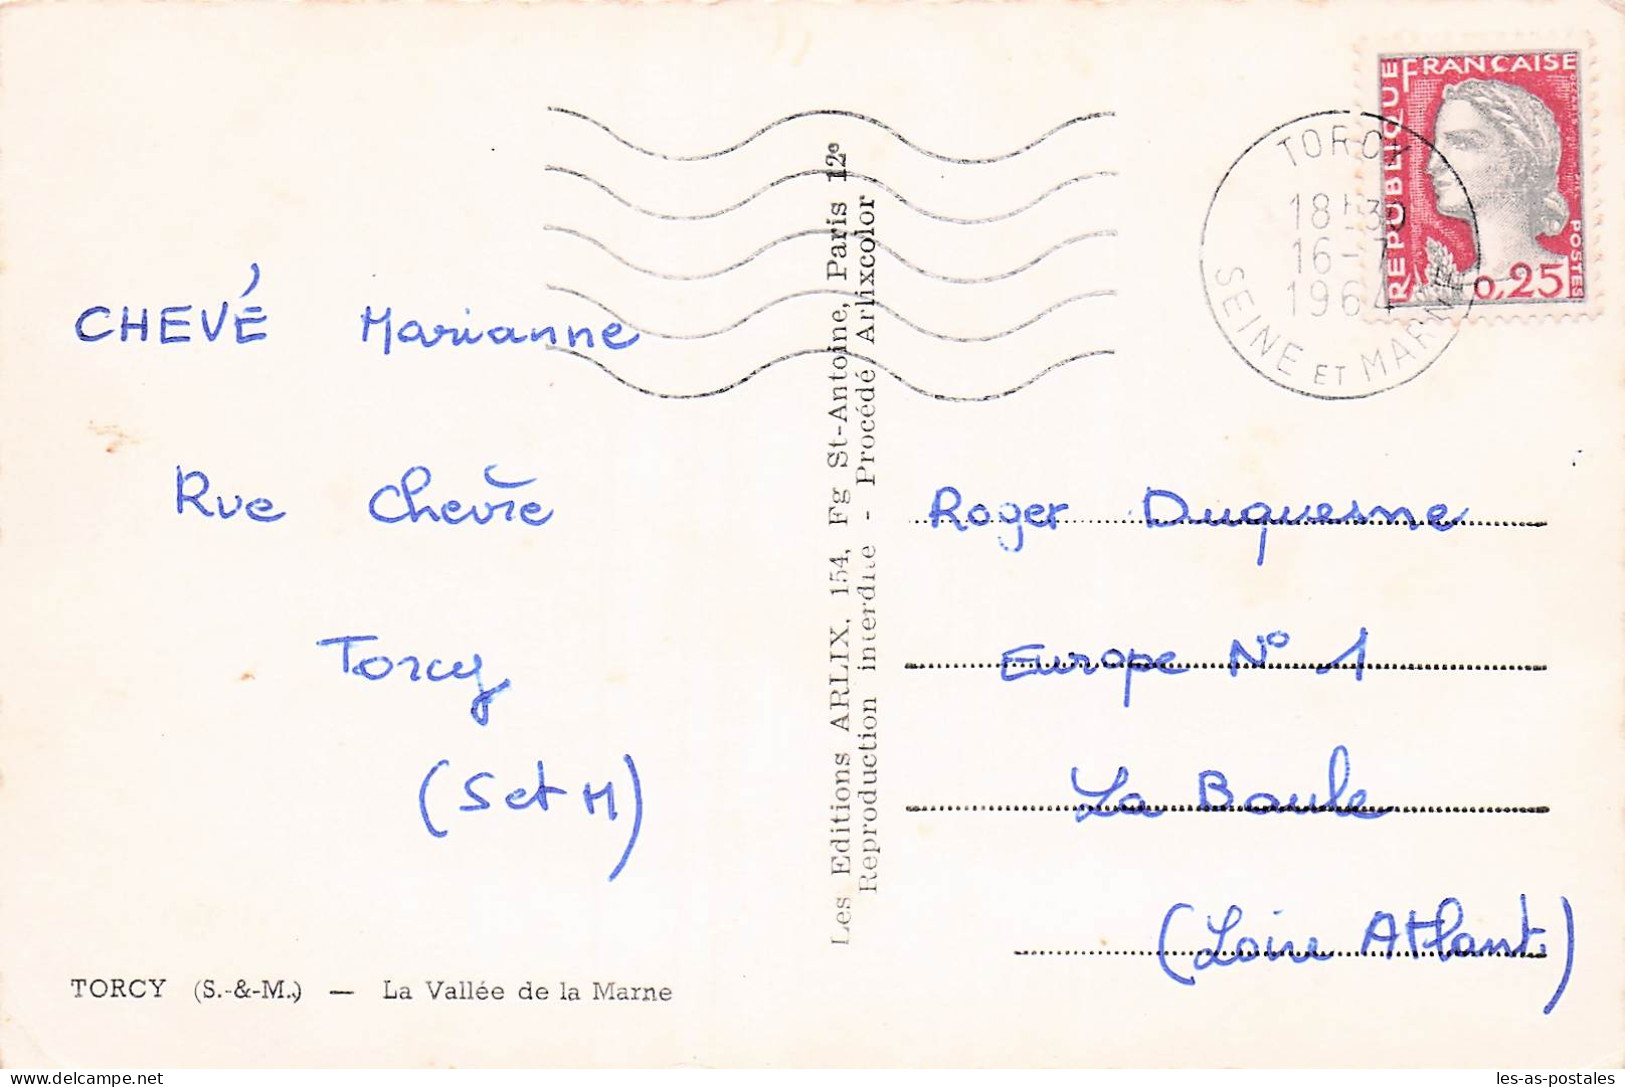 CHEVÉ Marianne
Rue Chevre
Torcy
(S et M)
TORCY (S.-&-M.) — La Vallée de la Marne
Les Editions ARLIX, 154, Fg St-Antoine, Paris 12e
Reproduction interdite - Procédé Arlixcolor
REPUBLIQUE FRANÇAISE
POSTES
0,25
TORCY
18H30
16-7
1964
SEINE ET MARNE
Roger Duquesne
Europe N° 1
La Baule
(Loire Atlant.)
les-as-postales